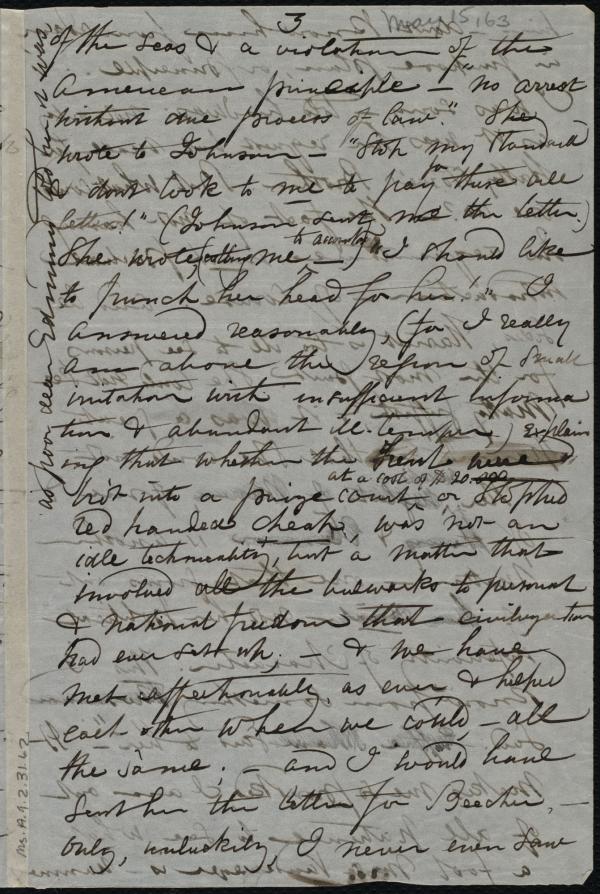 3
May 15, 63
of the seas & a violation of the
American principle – no arrest
without due process of law." She
wrote to Johnson – "Stop my Standard
I dont look to me to pay for these all
letters!" (Johnson sent me the letter.)
She wrote, (calling me, – to accosting) "I should like
to punch her head for her!" I
answered reasonably (for I really
am above the region of small
irritation with insufficient informa
tion & abundant ill-temper,) explain
ing that whether the Trent were
bro't into a prize court at a cost of $20. or stopped
red handed cheap, was not an
idle technicality, but a matter that
involved all the bulwarks to personal
& national freedom that civilization
had ever set up. – & we have
met affectionately as ever & helped
each other when we could, – all
the same; – and I would have
sent her the letter for Beecher, –
only, unluckily, I never even saw
as poor dear Edmund
Ms. A.9.2.31.62